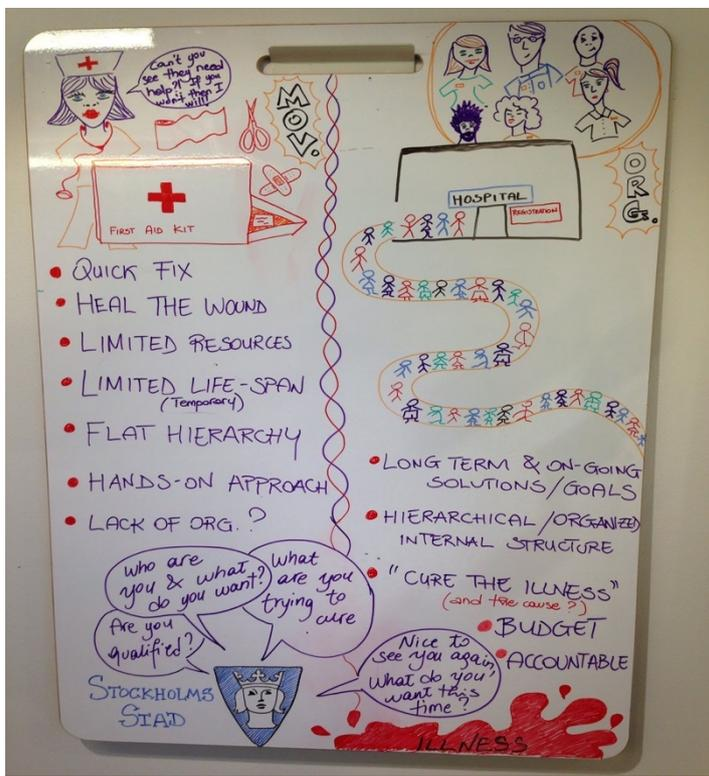 Can't you
see they need
help?! If you
won't then I
will!
MOV.
FIRST AID KIT
• QUICK FIX
• HEAL THE WOUND
• LIMITED RESOURCES
• LIMITED LIFE-SPAN
(Temporary)
• FLAT HIERARCHY
• HANDS-ON APPROACH
• LACK OF ORG.?
who are
you & what
do you want?
What
are you
trying to
cure
Are you
qualified?
STOCKHOLMS
STAD
ORG.
HOSPITAL
REGISTRATION
• LONG TERM & ON-GOING
SOLUTIONS/GOALS
• HIERARCHICAL/ORGANIZED
INTERNAL STRUCTURE
• "CURE THE ILLNESS"
(and the cause?)
• BUDGET
• ACCOUNTABLE
Nice to
see you again,
What do you
want this
time?
ILLNESS